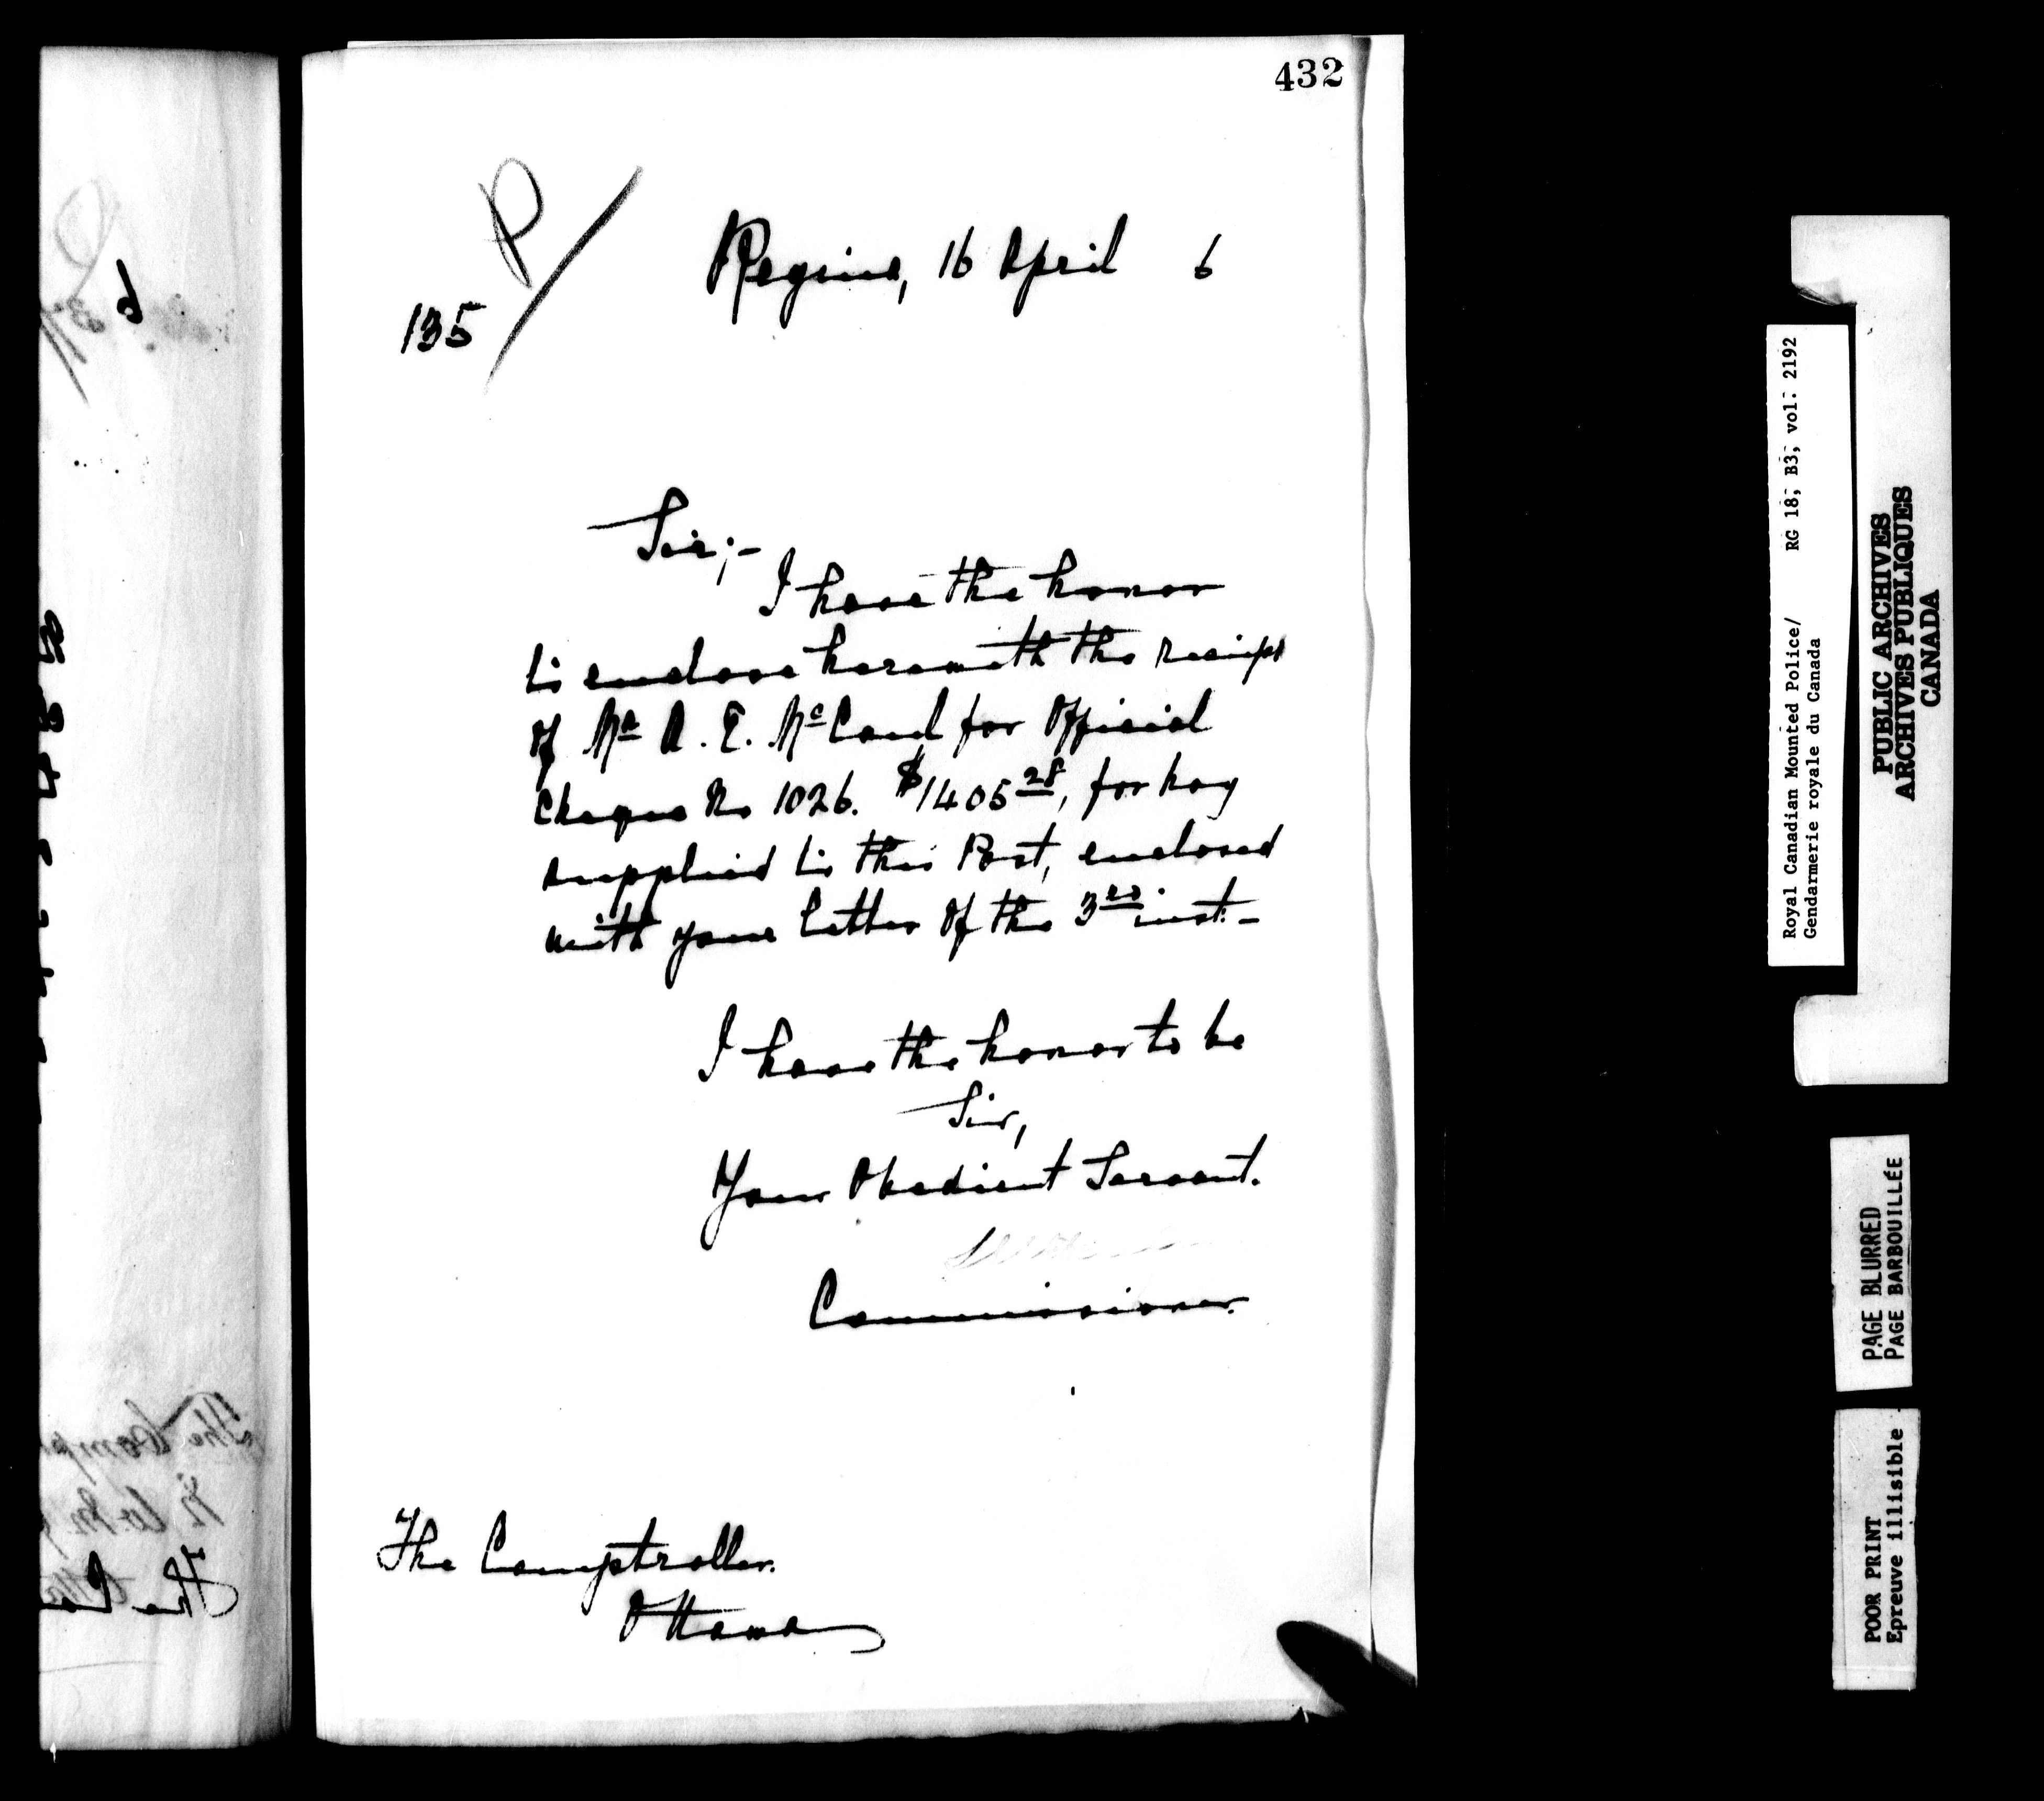 432
P
135
Regina, 16 April 6
Sir;-
I have the honor
to enclose herewith the receipt
of Mr A. E. McCaul for Official
Cheque No 1026. $1405 28, for hay
supplied to this Post, enclosed
with your letter of the 3rd inst.-
I have the honor to be
Sir,
Your Obedient Servant.
Commissioner.
The Comptroller.
Ottawa
Royal Canadian Mounted Police/ RG 18, B3, vol. 2192
Gendarmerie royale du Canada
PUBLIC ARCHIVES
ARCHIVES PUBLIQUES
CANADA
PAGE BLURRED
PAGE BARBOUILLÉE
POOR PRINT
Epreuve illisible